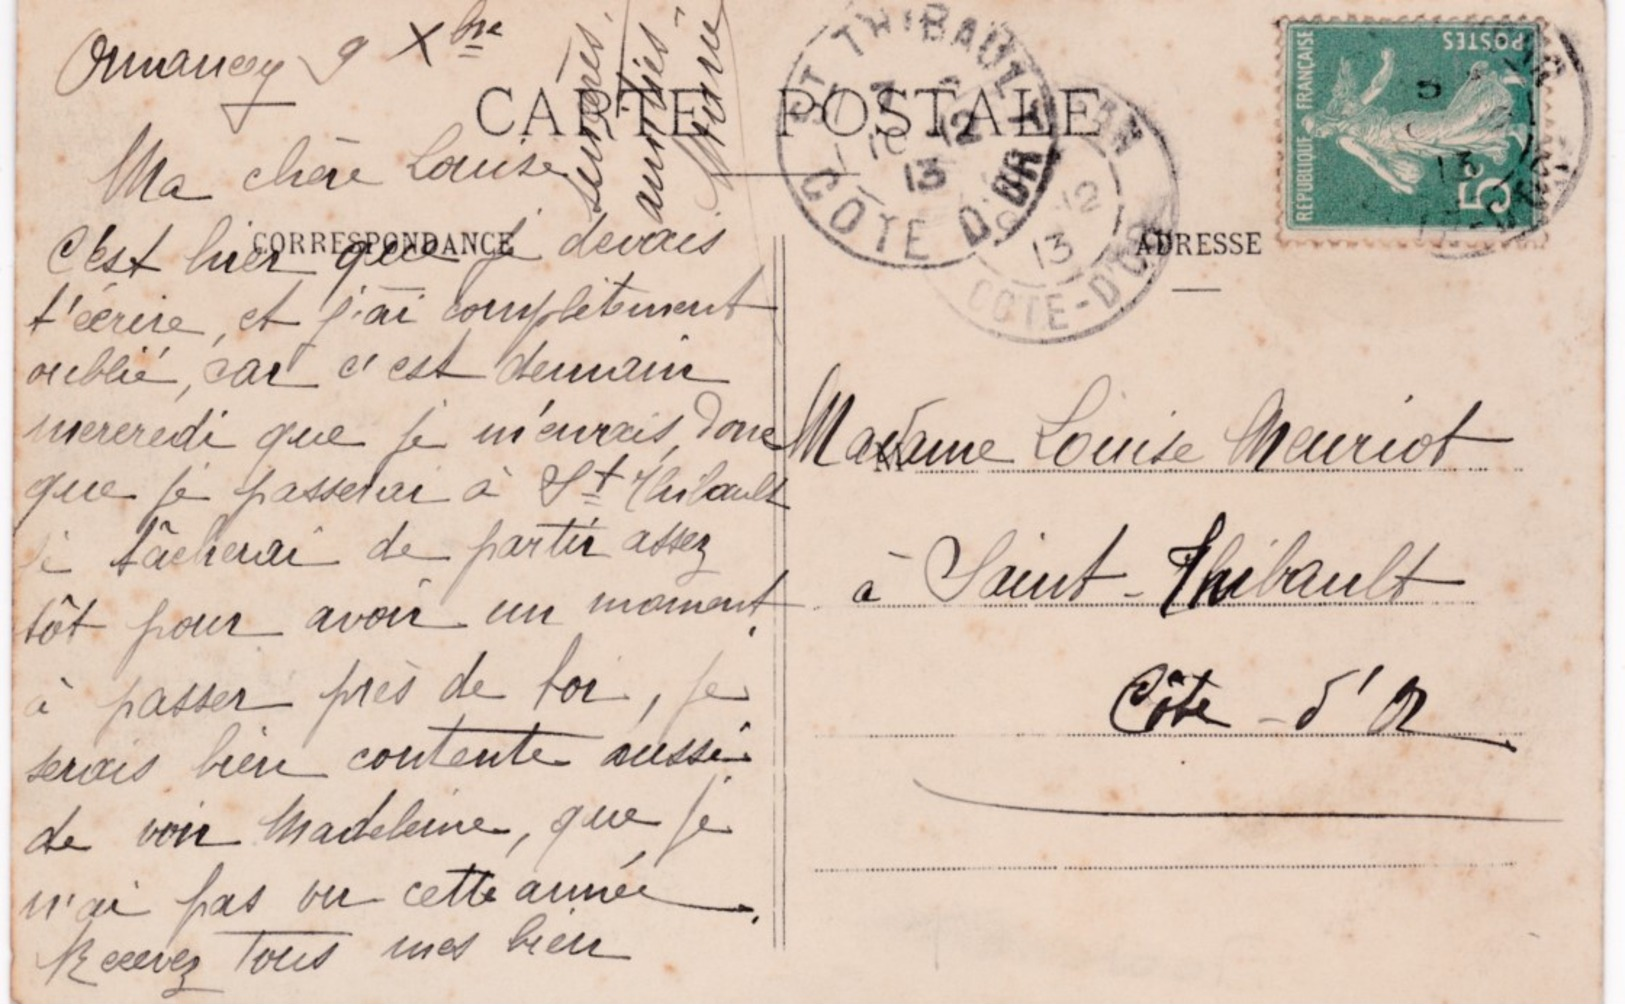 Ormancey 9 Xbre
CARTE POSTALE
Ma chère Louise
CORRESPONDANCE
C'est hier que je devais
t'écrire, et j'ai complètement
oublié, car c'est demain
mercredi que je m'en vais, donc
que je passerai à St Thibault
je tâcherai de partir assez
tôt pour avoir un moment
à passer près de toi, je
serais bien contente aussi
de voir Madeleine, que je
n'ai pas vu cette année.
Recevez tous mes bien
sincères
amitiés
Marie
ST THIBAULT
10 12
13
COTE D'OR
12
13
COTE-D'OR
REPUBLIQUE FRANÇAISE
POSTES
5
13
ADRESSE
Madame Louise Meuriot
à Saint-Thibault
Côte-d'Or